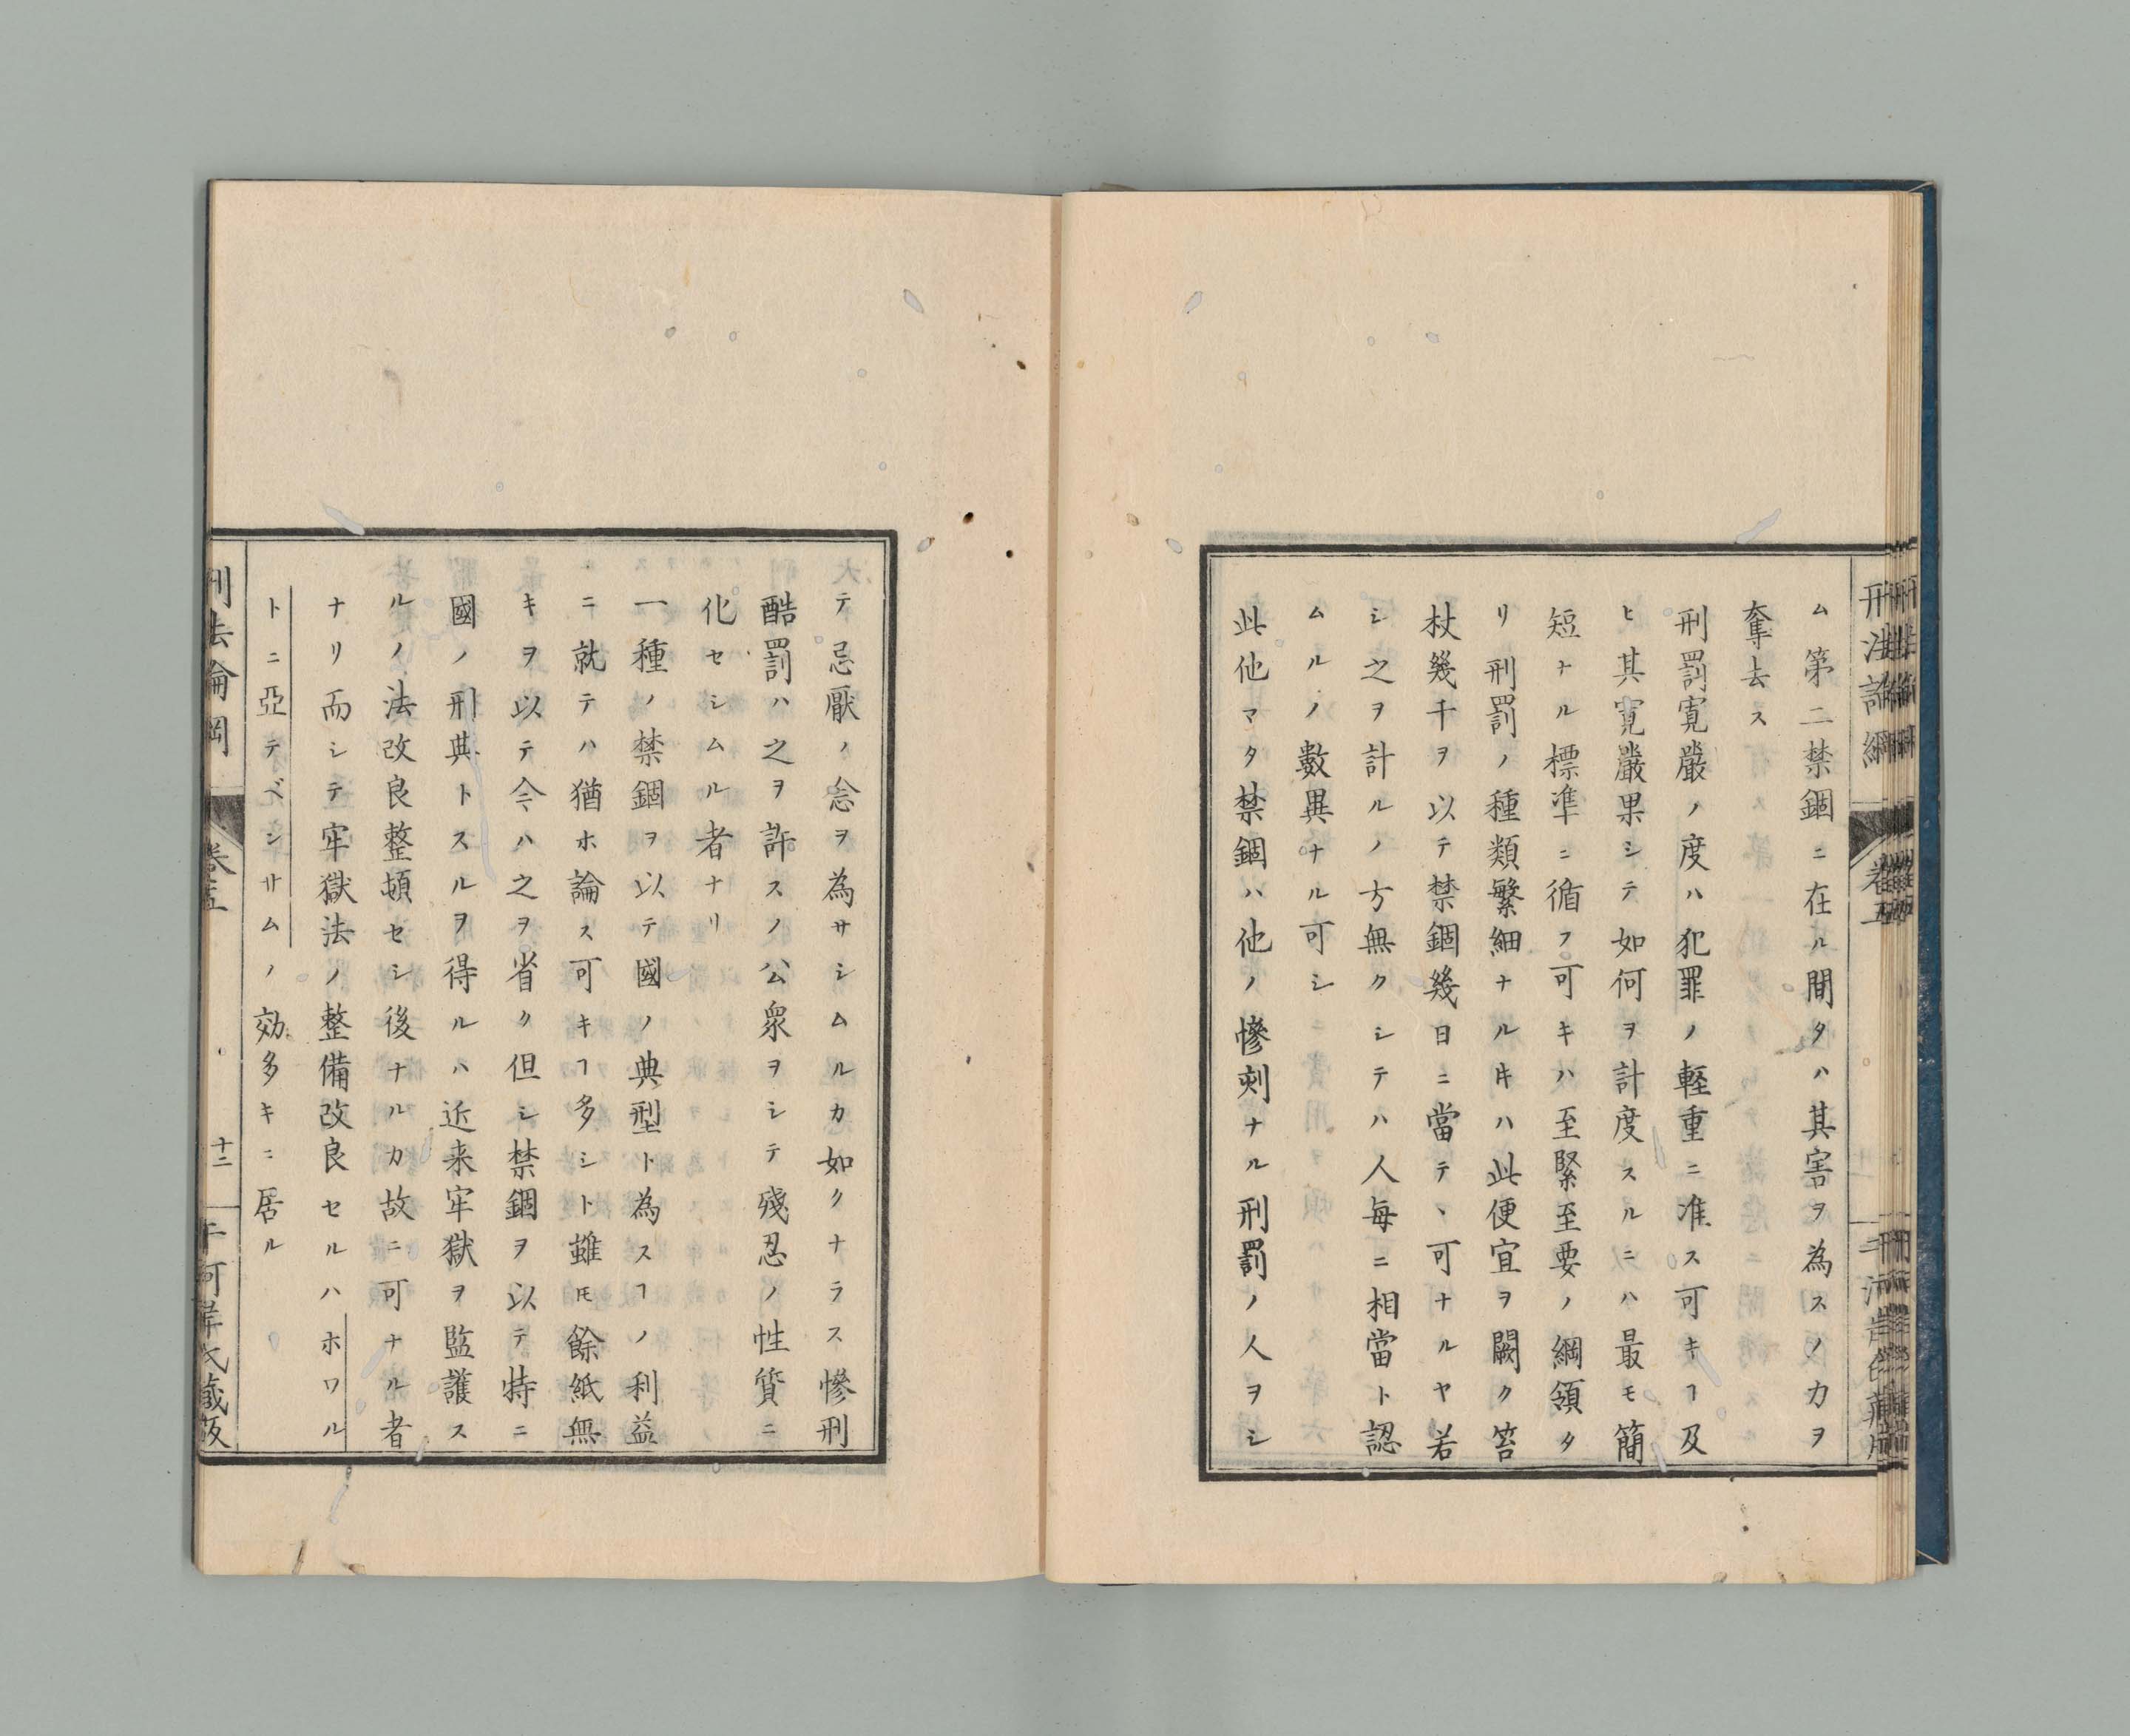 ム第二禁錮ニ在ル間タハ其害ヲ為スノカヲ
奪去ス
刑罰寛嚴ノ度ハ犯罪ノ軽重ニ准ス可キヿ及
ヒ其寛嚴果シテ如何ヲ計度スルニハ最モ簡
短ナル標準ニ循フ可キハ至緊至要ノ綱領タ
リ刑罰ノ種類繁細ナル𪜈ハ此便宜ヲ闕ク笞
杖幾千ヲ以テ禁錮幾日ニ當テヽ可ナルヤ若
シ之ヲ計ルノ方無クシテハ人毎ニ相當ト認
ムルノ數異ナル可シ
此他マタ禁錮ハ他ノ慘刻ナル刑罰ノ人ヲシ
テ忌厭ノ念ヲ為サシムルカ如クナラス慘刑
酷罰ハ之ヲ許スノ公衆ヲシテ殘忍ノ性質ニ
化セシムル者ナリ
一種ノ禁錮ヲ以テ國ノ典型ト為スヿノ利益
ニ就テハ猶ホ論ス可キヿ多シト雖𪜈餘紙無
キヲ以テ今ハ之ヲ省ク但シ禁錮ヲ以テ特ニ
國ノ刑典トスルヲ得ルハ近来牢獄ヲ監護ス
ルノ法改良整頓セシ後ナルカ故ニ可ナル者
ナリ而シテ牢獄法ノ整備改良セルハホワル
トニ亞テベシサムノ効多キニ居ル
刑法論綱
卷五
十二